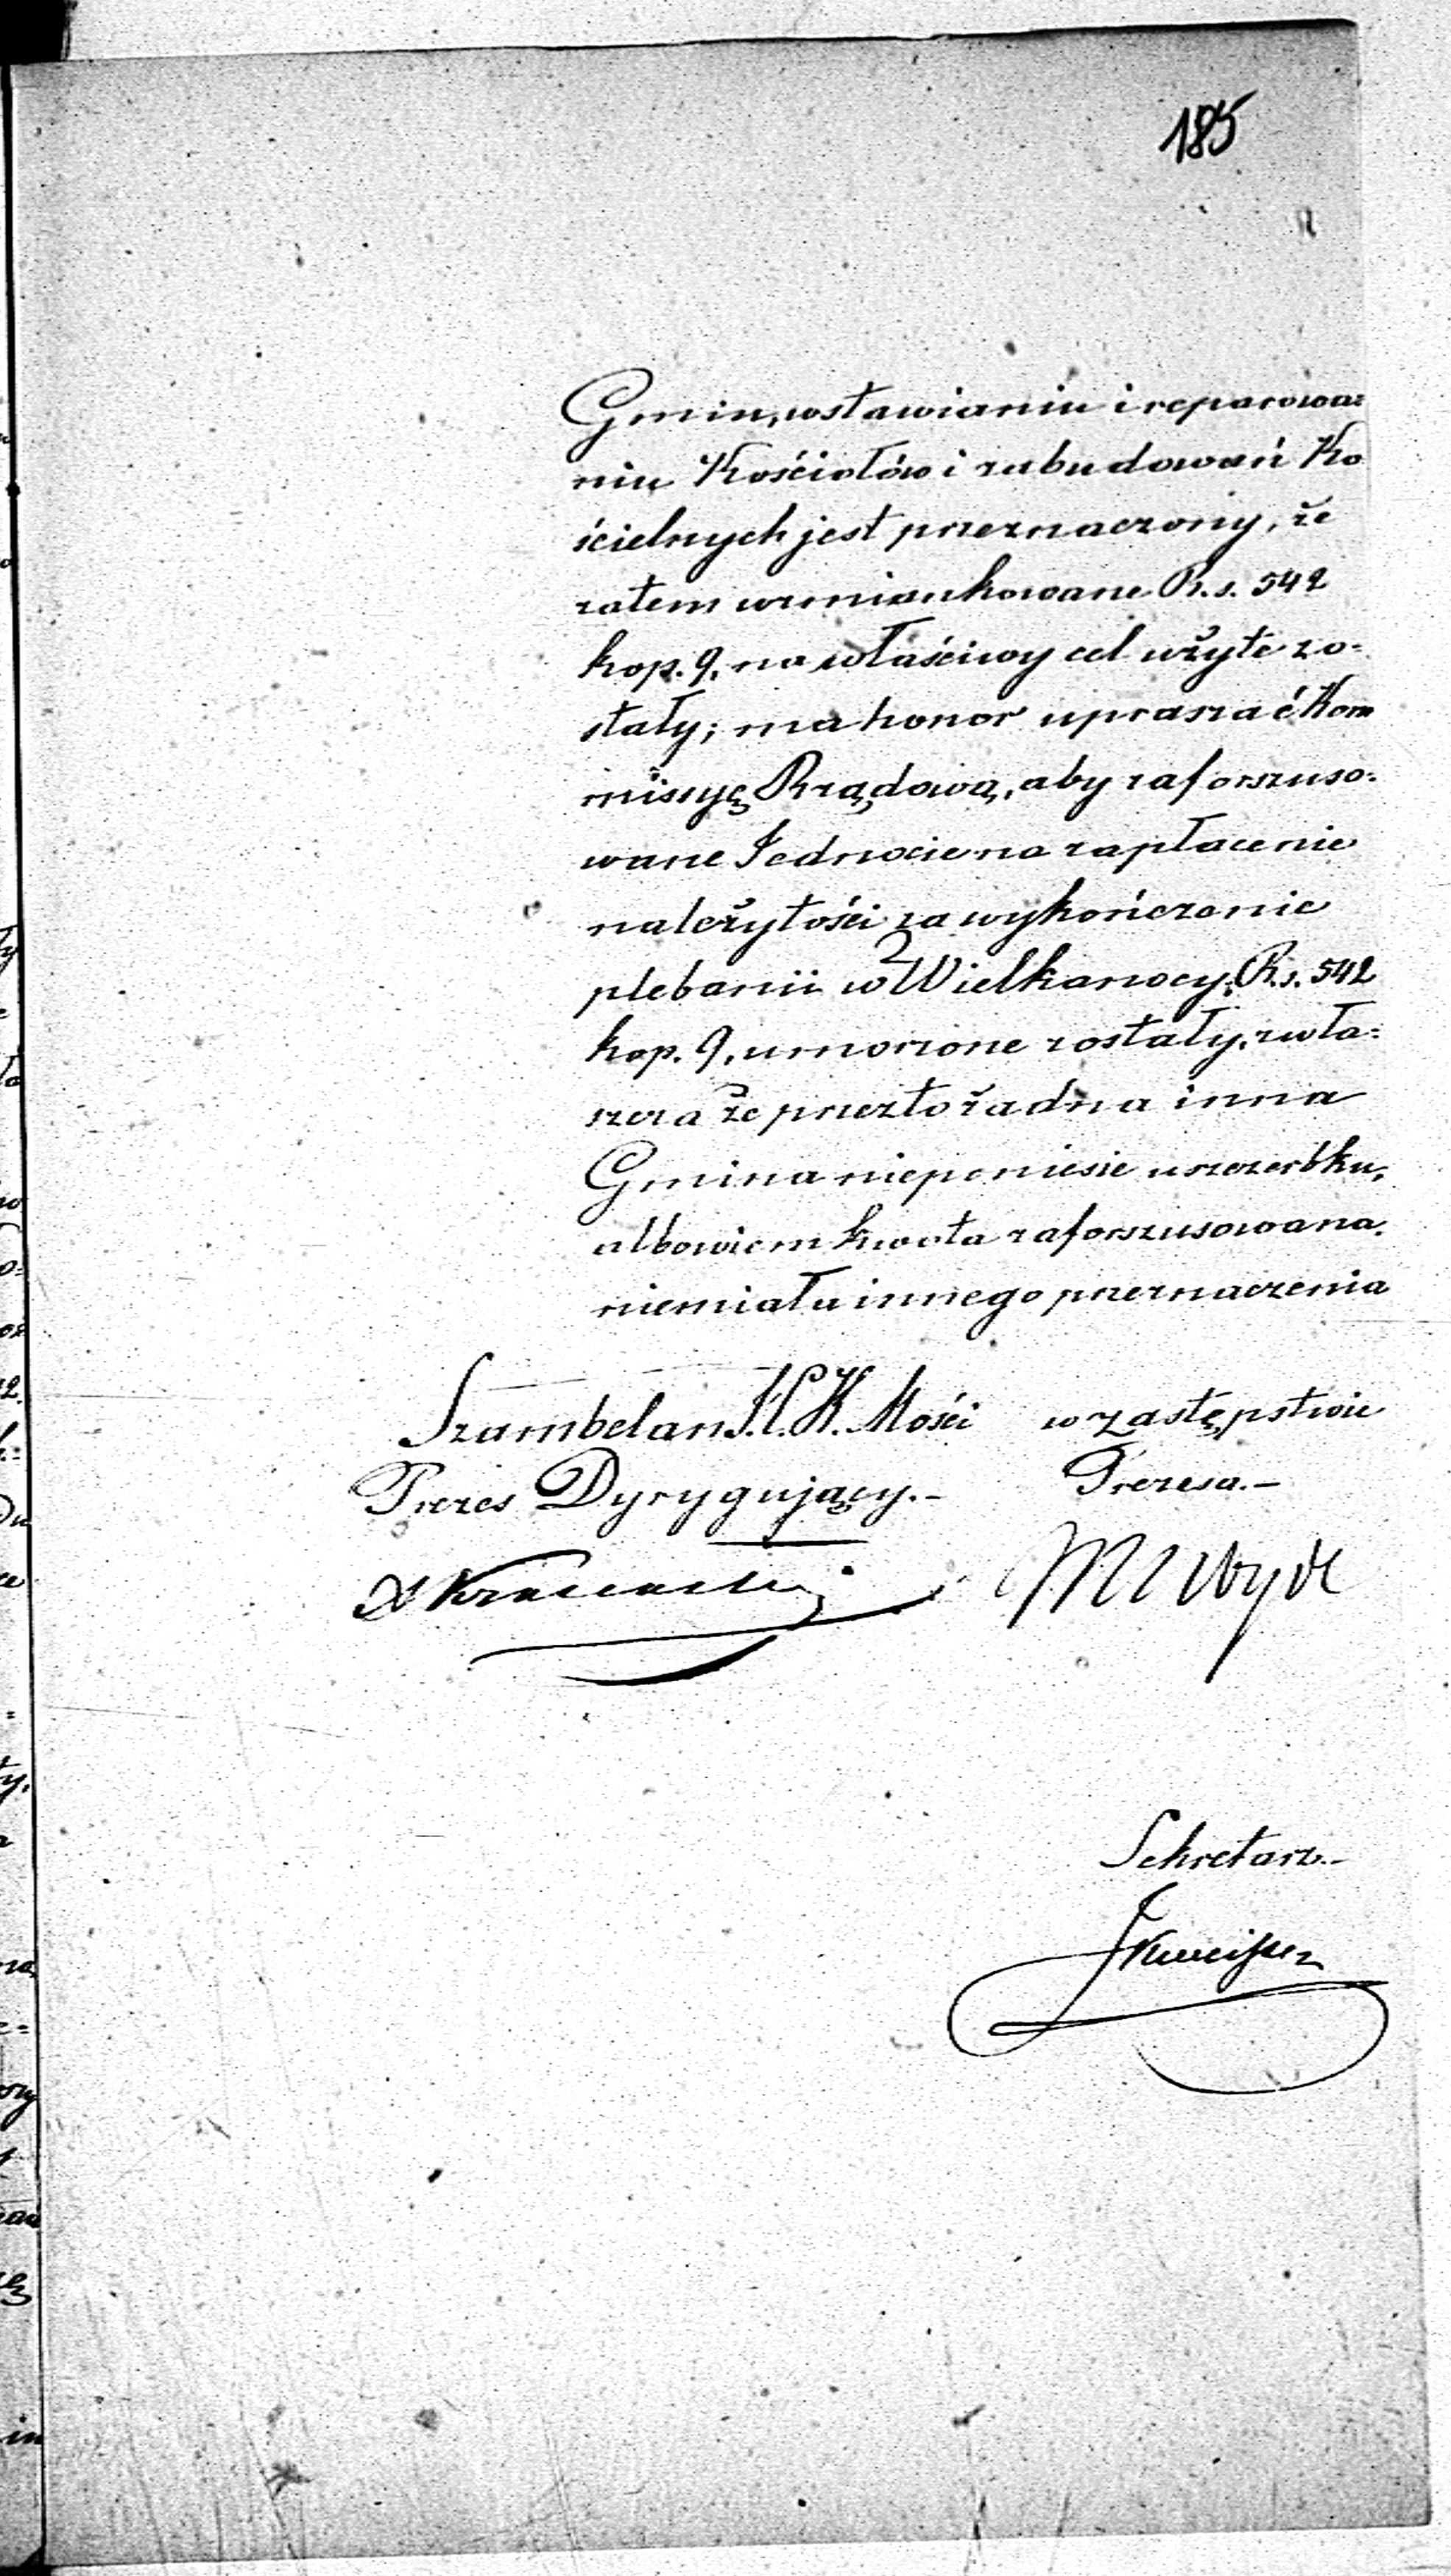 185
Gmin, wstawianiu i reparowa=
niu Kościołów i zabudowań Ko
ścielnych jest przeznaczony, że
zatem wzmiankowane R.s. 542
kop. 9, na właściwy cel użyte zo=
stały; ma honor upraszać Kom
missyę Rządową, aby zaforszuso=
wane Jednocie na zapłacenie
należytości za wykończenie
plebanii w Wielkanocy, R.s. 542
kop. 9, umorzone zostały, zwła=
szcza że przezto żadna inna
Gmina nieponiesie uszczerbku,
albowiem kwota zaforszusowana,
niemiała innego przeznaczenia
Szambelan J.C.K. Mości w zastępstwie
Prezes Dyrygujący.- Prezesa.-
Sekretarz.-